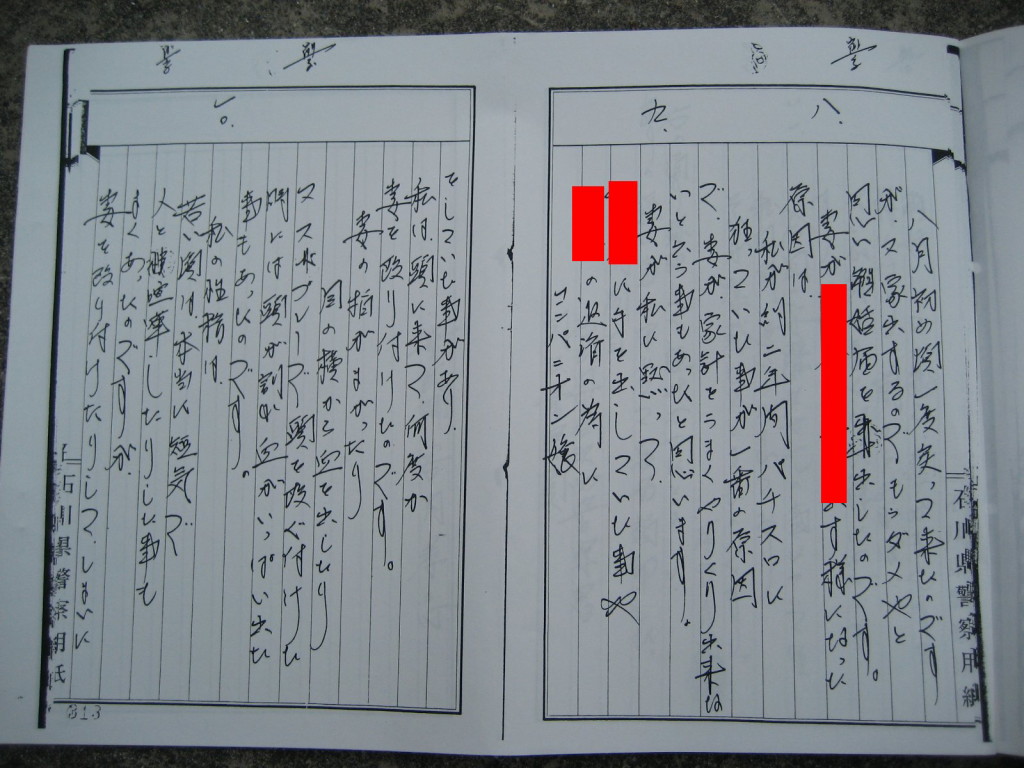 八.
八月初め頃一度戻って来たのですが
ガス家出するので、もうダメやと
思い離婚届を平出したのです。
妻が
す様になった
原因は、
私が約二年間パチスロに
狂っていた事が一番の原因
で、妻が、家計をうまくやりくり出来な
いと云う事もあったと思います。
九.
妻が私に黙って
に手を出していた事や
の返済の為に
コンパニオン嬢
をしていた事があり、
私は、頭に来て、何度か
妻を殴り付けたのです。
妻の指がまがったり
目の横から血を出したり
マスカプレーで頭を殴ぐ付けた
時には頭が割れ血がいっぱい出た
事もあったのです。
一〇.
私の性格は、
若い頃は、本当に短気で
人と喧嘩したりした事も
よくあったのですが、
妻を殴り付けたりして、しまいに
石川県警察用紙
石川県警察用紙